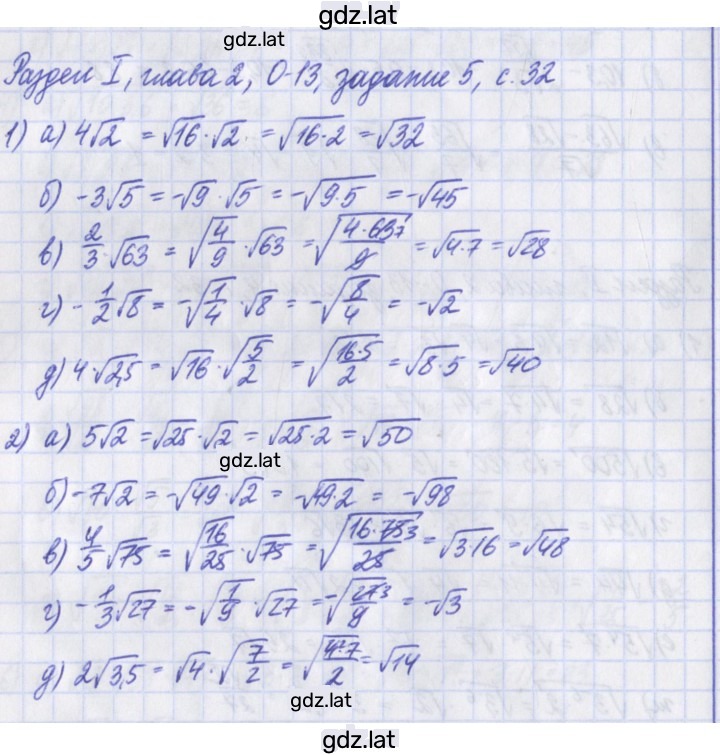 gdz.lat
gdz.lat
gdz.lat
Раздел I, глава 2, О-13, задание 5, с. 32
1) а) 4√2 = √16·√2 = √(16·2) = √32
б) -3√5 = -√9·√5 = -√(9·5) = -√45
в) 2/3·√63 = √(4/9)·√63 = √((4·63 7)/9) = √(4·7) = √28
г) -1/2√8 = -√(1/4)·√8 = -√(8/4) = -√2
д) 4·√2,5 = √16·√(5/2) = √((16·5)/2) = √(8·5) = √40
2) а) 5√2 = √25·√2 = √(25·2) = √50
gdz.lat
б) -7√2 = -√49·√2 = -√(49·2) = -√98
в) 4/5√75 = √(16/25)·√75 = √((16·75 3)/25) = √(3·16) = √48
г) -1/3√27 = -√(1/9)·√27 = -√(27 3/9) = -√3
д) 2√3,5 = √4·√(7/2) = √((4·7)/2) = √14
gdz.lat
gdz.lat